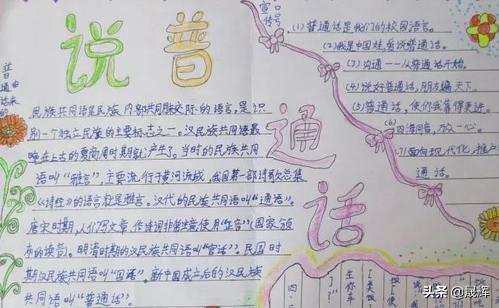 说普通话
普通话的由来
民族共同语是民族内部共同用来交际的语言,是识
别一个独立民族的主要标志之一。汉民族共同语最
晚在上古的夏商周时期就产生了。当时的民族共同
语叫“雅言”,主要流行于黄河流域,我国第一部诗歌总集
《诗经》的语言就是雅言。汉代的民族共同语叫“通语”。
唐宋时期,人们写文章、作诗词非常注意使用“正音”(国家颁
布的读音)。明清时期的汉民族共同语叫“官话”。民国时
期汉民族共同语叫“国语”。新中国成立之后的汉民族
共同语叫“普通话”。
宣传口号
(1)普通话是我们的校园语言。
(2)我是中国娃,爱说普通话。
(3)沟通——从普通话开始。
(4)说好普通话,朋友遍天下。
(5)普通话,使你我靠得更近。
(6)四海同音,众一心。
(7)面向现代化,推广
普通话。
头条 @晟辉